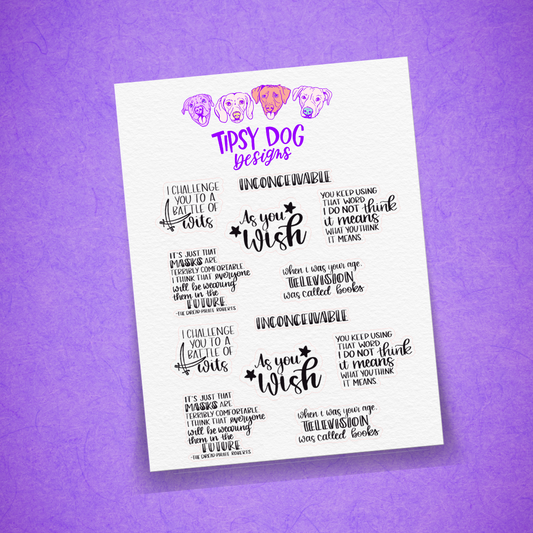 TIPSY DOG
Designs
INCONCEIVABLE
I CHALLENGE
YOU TO A
BATTLE OF
wits
As you
wish
YOU KEEP USING
THAT WORD
I DO NOT think
it means
WHAT YOU THINK
IT MEANS
IT'S JUST THAT
MASKS ARE
TERRIBLY COMFORTABLE.
I THINK THAT everyone
will be wearing
them in the
FUTURE
-THE DREAD PIRATE ROBERTS
when I was your age,
TELEVISION
was called books
INCONCEIVABLE
I CHALLENGE
YOU TO A
BATTLE OF
wits
As you
wish
YOU KEEP USING
THAT WORD
I DO NOT think
it means
WHAT YOU THINK
IT MEANS
IT'S JUST THAT
MASKS ARE
TERRIBLY COMFORTABLE.
I THINK THAT everyone
will be wearing
them in the
FUTURE
-THE DREAD PIRATE ROBERTS
when I was your age,
TELEVISION
was called books